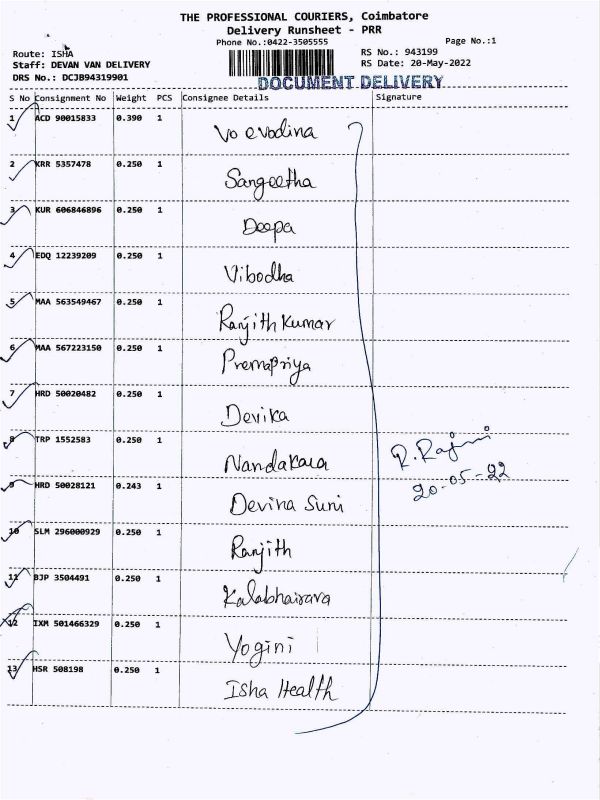 THE PROFESSIONAL COURIERS, Coimbatore
Delivery Runsheet - PRR
Phone No.:0422-3505555 Page No.:1
Route: ISHA RS No.: 943199
Staff: DEVAN VAN DELIVERY RS Date: 20-May-2022
DRS No.: DCJB94319901
DOCUMENT DELIVERY
S No Consignment No Weight PCS Consignee Details Signature
1 ACD 90015833 0.390 1 Vo evodina
2 KRR 5357478 0.250 1 Sangeetha
3 KUR 606846896 0.250 1 Deepa
4 EDQ 12239209 0.250 1 Vibodha
5 MAA 563549467 0.250 1 Ranjith Kumar
6 MAA 567223150 0.250 1 Premapriya
7 HRD 50020482 0.250 1 Devika
8 TRP 1552583 0.250 1 Nandakara
R. Rajini
20-05-22
9 HRD 50028121 0.243 1 Devina Suni
10 SLM 296000929 0.250 1 Ranjith
11 BJP 3504491 0.250 1 Kalabhairava
12 IXM 501466329 0.250 1 Yogini
13 HSR 508198 0.250 1 Isha Health